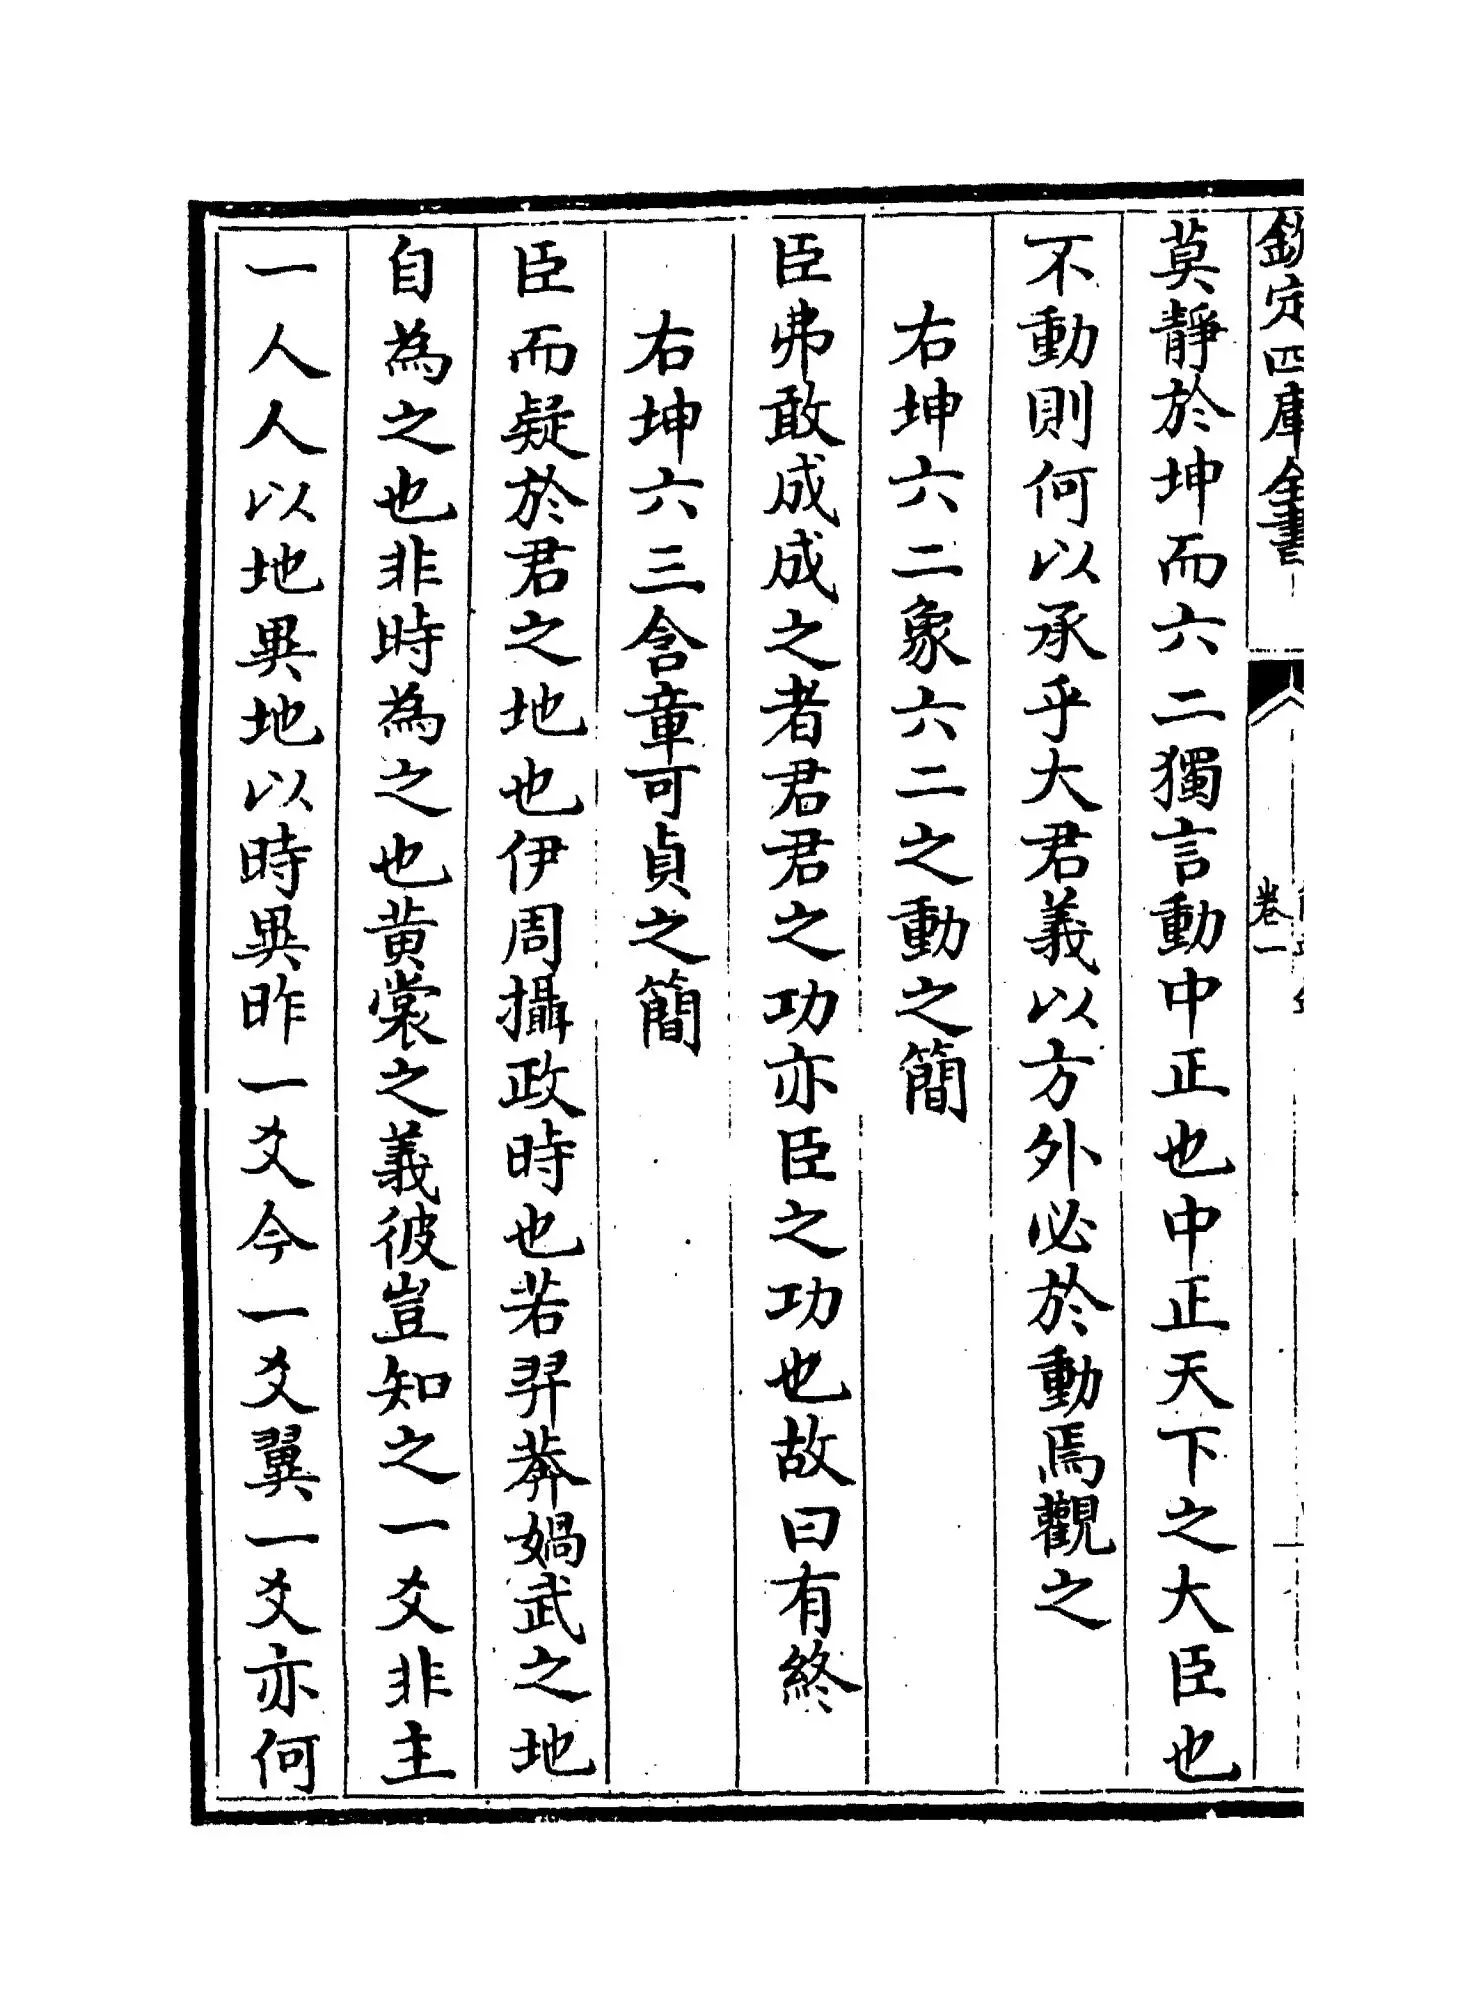 欽定四庫全書
卷一
莫靜於坤而六二獨言動中正也中正天下之大臣也
不動則何以承乎大君義以方外必於動焉觀之
右坤六二象六二之動之簡
臣弗敢成成之者君君之功亦臣之功也故曰有終
右坤六三含章可貞之簡
臣而疑於君之地也伊周攝政時也若羿莽媧武之地
自為之也非時為之也黃裳之義彼豈知之一爻非主
一人人以地異地以時異昨一爻今一爻翼一爻亦何